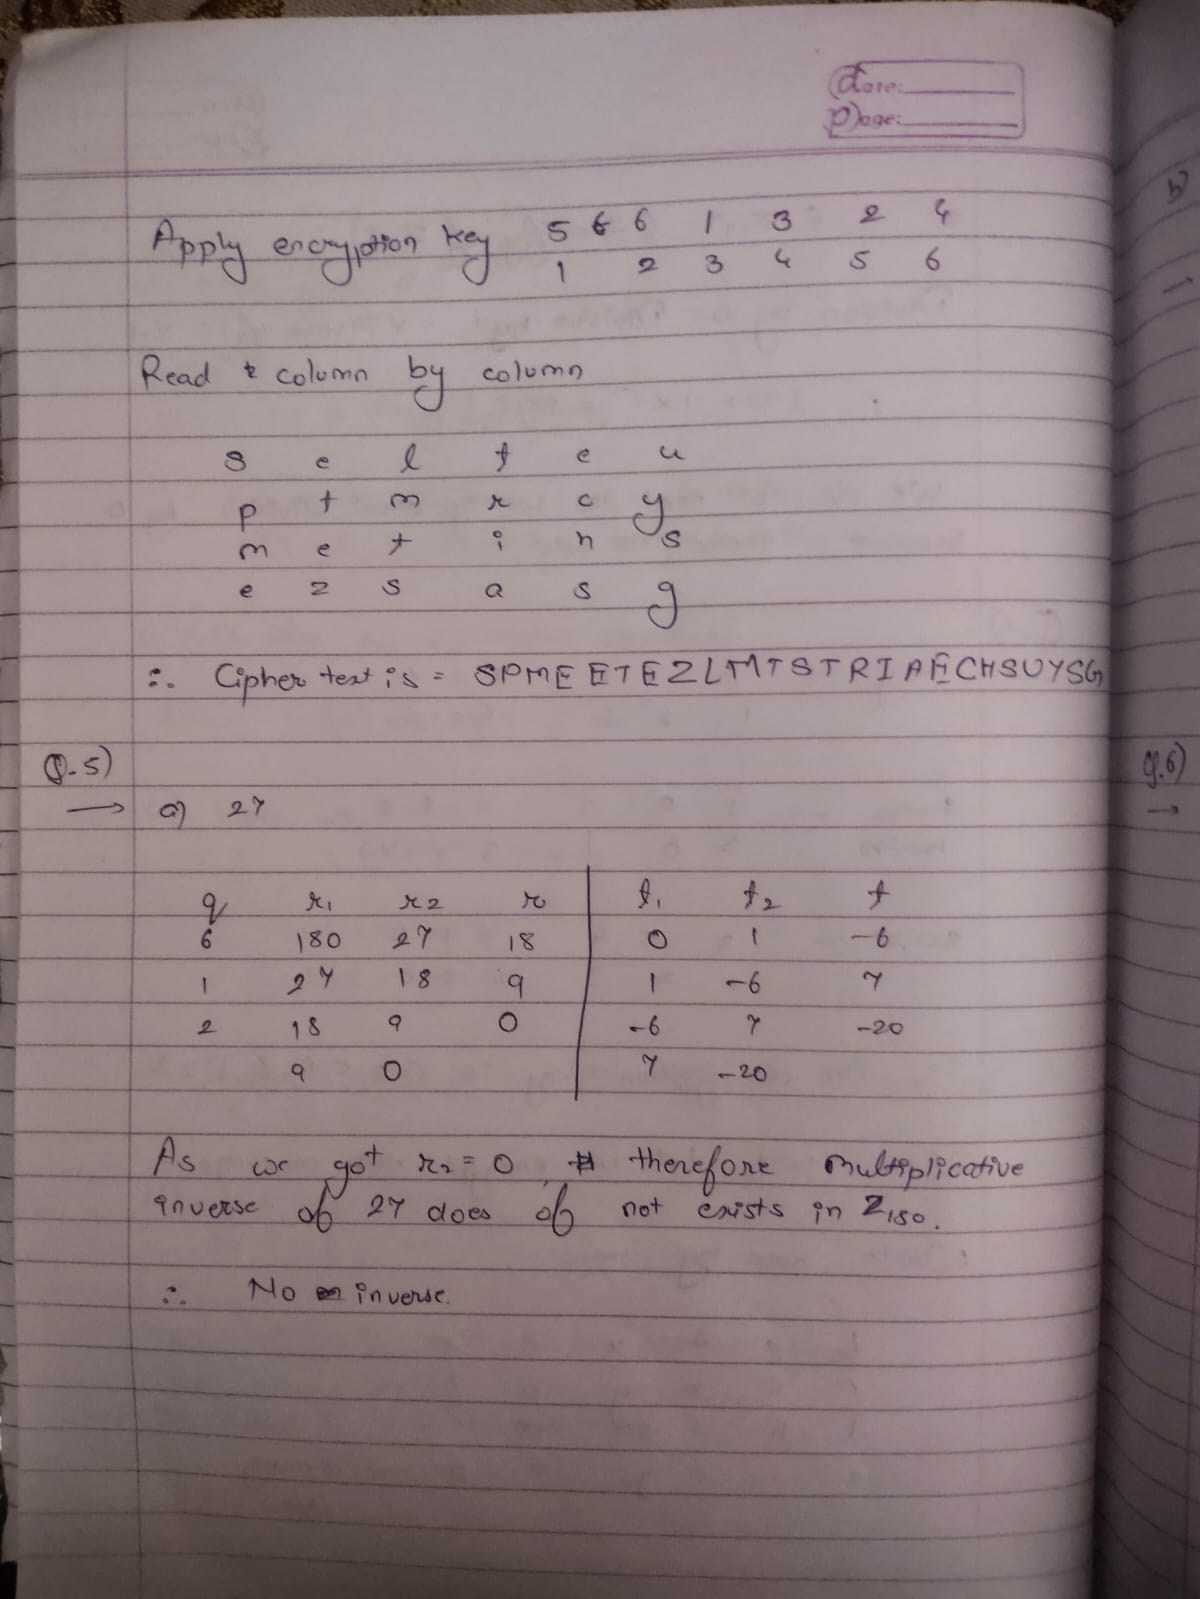 Date:
Page:
Apply encryption key 5 6 1 3 2 4
1 2 3 4 5 6
Read column by column
s e l t e u
p t m r c y
m e t i h s
e z s a s g
∴ Cipher text is = SPMEETEZLMTSTRIAECHSUYSG
Q.5)
→ a) 27
q r₁ r₂ r t₁ t₂ t
6 180 27 18 0 1 -6
1 27 18 9 1 -6 7
2 18 9 0 -6 7 -20
9 0 7 -20
As we got r₂ = 0, therefore multiplicative
inverse of 27 does of not exists in Z₁₈₀.
∴ No inverse.
b)
→
Q.6)
→